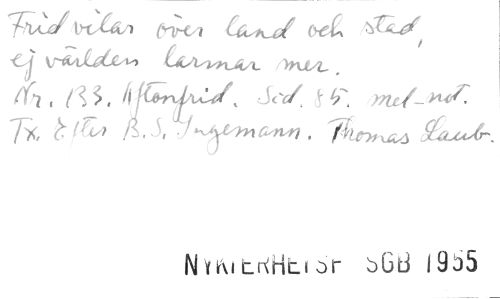 Frid vilar över land och stad,
ej världen larmar mer.
Nr. 133. Aftonfrid. Sid. 85. mel-not.
Tx. Efter B.S. Ingemann. Thomas Laub.
NYKTERHETSF SGB 1955